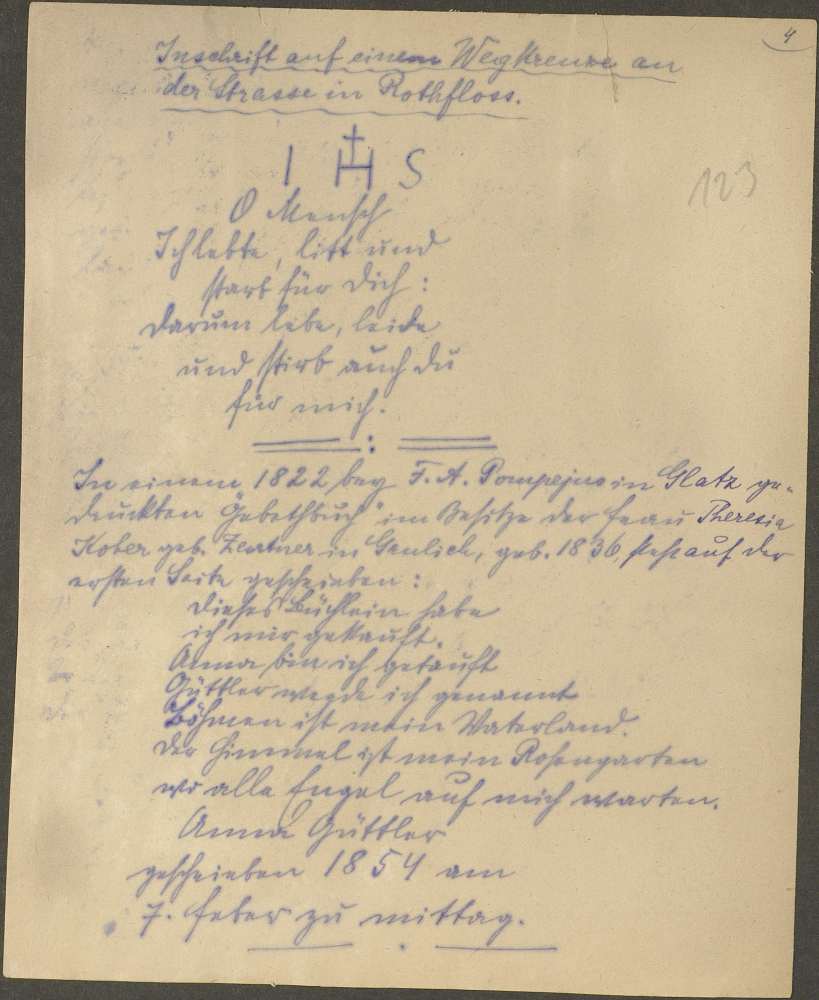 4
Inschrift auf einem Wegkreuze an
der Strasse in Rothfloss.
123
I H S
O Mensch
Ich lebte, litt und
starb für dich:
darum lebe, leide
und stirb auch du
für mich.
In einem 1822 bey F. A. Pompejus in Glatz ge-
druckten "Gebethbuch" im Besitze der Frau Theresia
Kober geb. Zentner in Grulich, geb. 1836, steht auf der
ersten Seite geschrieben:
Dieses Büchlein habe
ich mir gekauft.
Anna bin ich getauft
Güttler werde ich genannt
Böhmen ist mein Vaterland.
Der Himmel ist mein Rosengarten
wo alle Engel auf mich warten.
Anna Güttler
geschrieben 1854 am
7. Feber zu mittag.